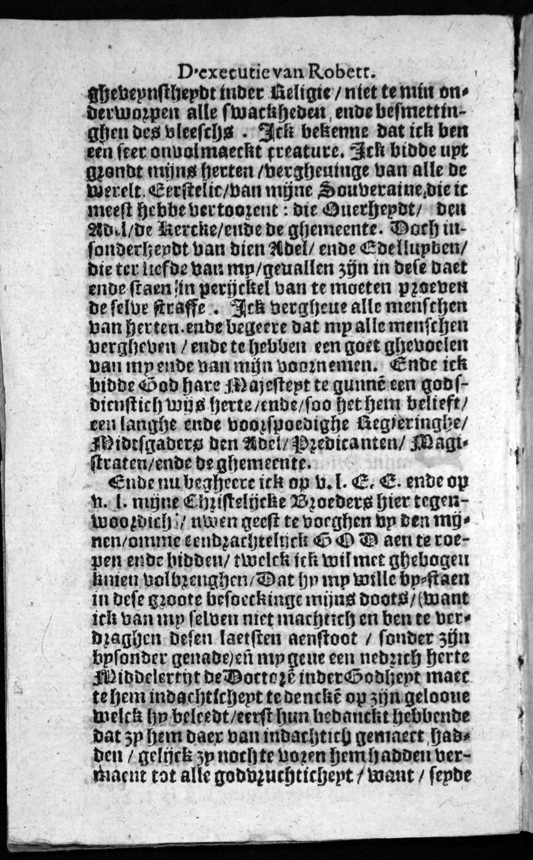 D'executie van Robert.
gheveynstheydt inder Religie / niet te min on-
derworpen alle swackheden ende besmettin-
ghen des vleeschs . Ick bekenne dat ick ben
een seer onvolmaeckt creature. Ick bidde uyt
grondt mijns herten / verghevinge van alle de
werelt. Eerstelic / van mijne Souveraine, die ic
meest hebbe vertoorent : die Overheydt / den
Adel / de Kercke / ende de ghemeente. Doch in-
sonderheydt van dien Adel / ende Edelluyden /
die ter liefde van my / gevallen zijn in dese daet
ende staen in perijckel van te moeten proeven
de selve straffe . Ick vergheve alle menschen
van herten. ende begeere dat my alle menschen
vergheven / ende te hebben een goet ghevoelen
van my ende van mijn voornemen. Ende ick
bidde God hare Majesteyt te gunnē een gods-
dienstich wijs herte / ende / soo het hem belieft /
een langhe ende voorspoedighe Regieringhe /
Midtsgaders den Adel / Predicanten / Magi-
straten / ende de ghemeente.
Ende nu begheere ick op v. l. E. E. ende op
v. l. mijne Christelijcke Broeders hier tegen-
woordich / uwen geest te voeghen by den mij-
nen / omme eendrachtelijck GOD aen te roe-
pen ende bidden / twelck ick wil met ghebogen
knien volbrenghen / Dat hy my wille by-staen
in dese groote besoeckinge mijns doots / (want
ick van my selven niet machtich en ben te ver-
draghen desen laetsten aenstoot / sonder zijn
bysonder genade) eñ my geve een nedrich herte
Middelertijt de Doctorē inder Godheyt maec
te hem indachticheyt te denckē op zijn geloove
welck hy beleedt / eerst hun bedanckt hebbende
dat zy hem daer van indachtich gemaect had-
den / gelijck zy noch te voren hem hadden ver-
maent tot alle godvruchticheyt / want / seyde